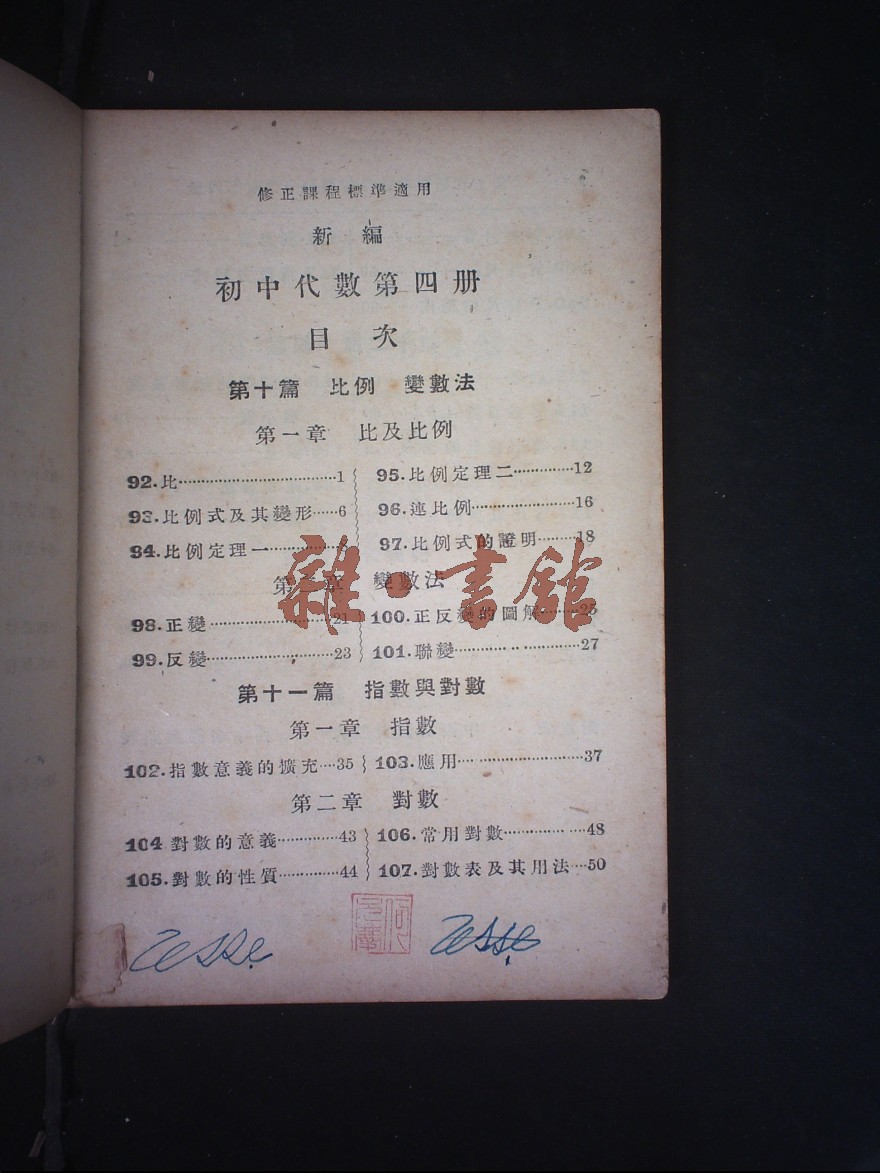 修正課程標準適用
新編
初中代數第四册
目次
第十篇 比例 變數法
第一章 比及比例
92.比……………………………1
93.比例式及其變形……6
94.比例定理一……………
95.比例定理二…………12
96.連比例…………………16
97.比例式的證明………18
第二章 變數法
98.正變……………………21
99.反變……………………23
100.正反變的圖解………25
101.聯變……………………27
第十一篇 指數與對數
第一章 指數
102.指數意義的擴充…35
103.應用……………………37
第二章 對數
104 對數的意義…………43
105.對數的性質…………44
106.常用對數……………48
107.對數表及其用法…50
雜·書館